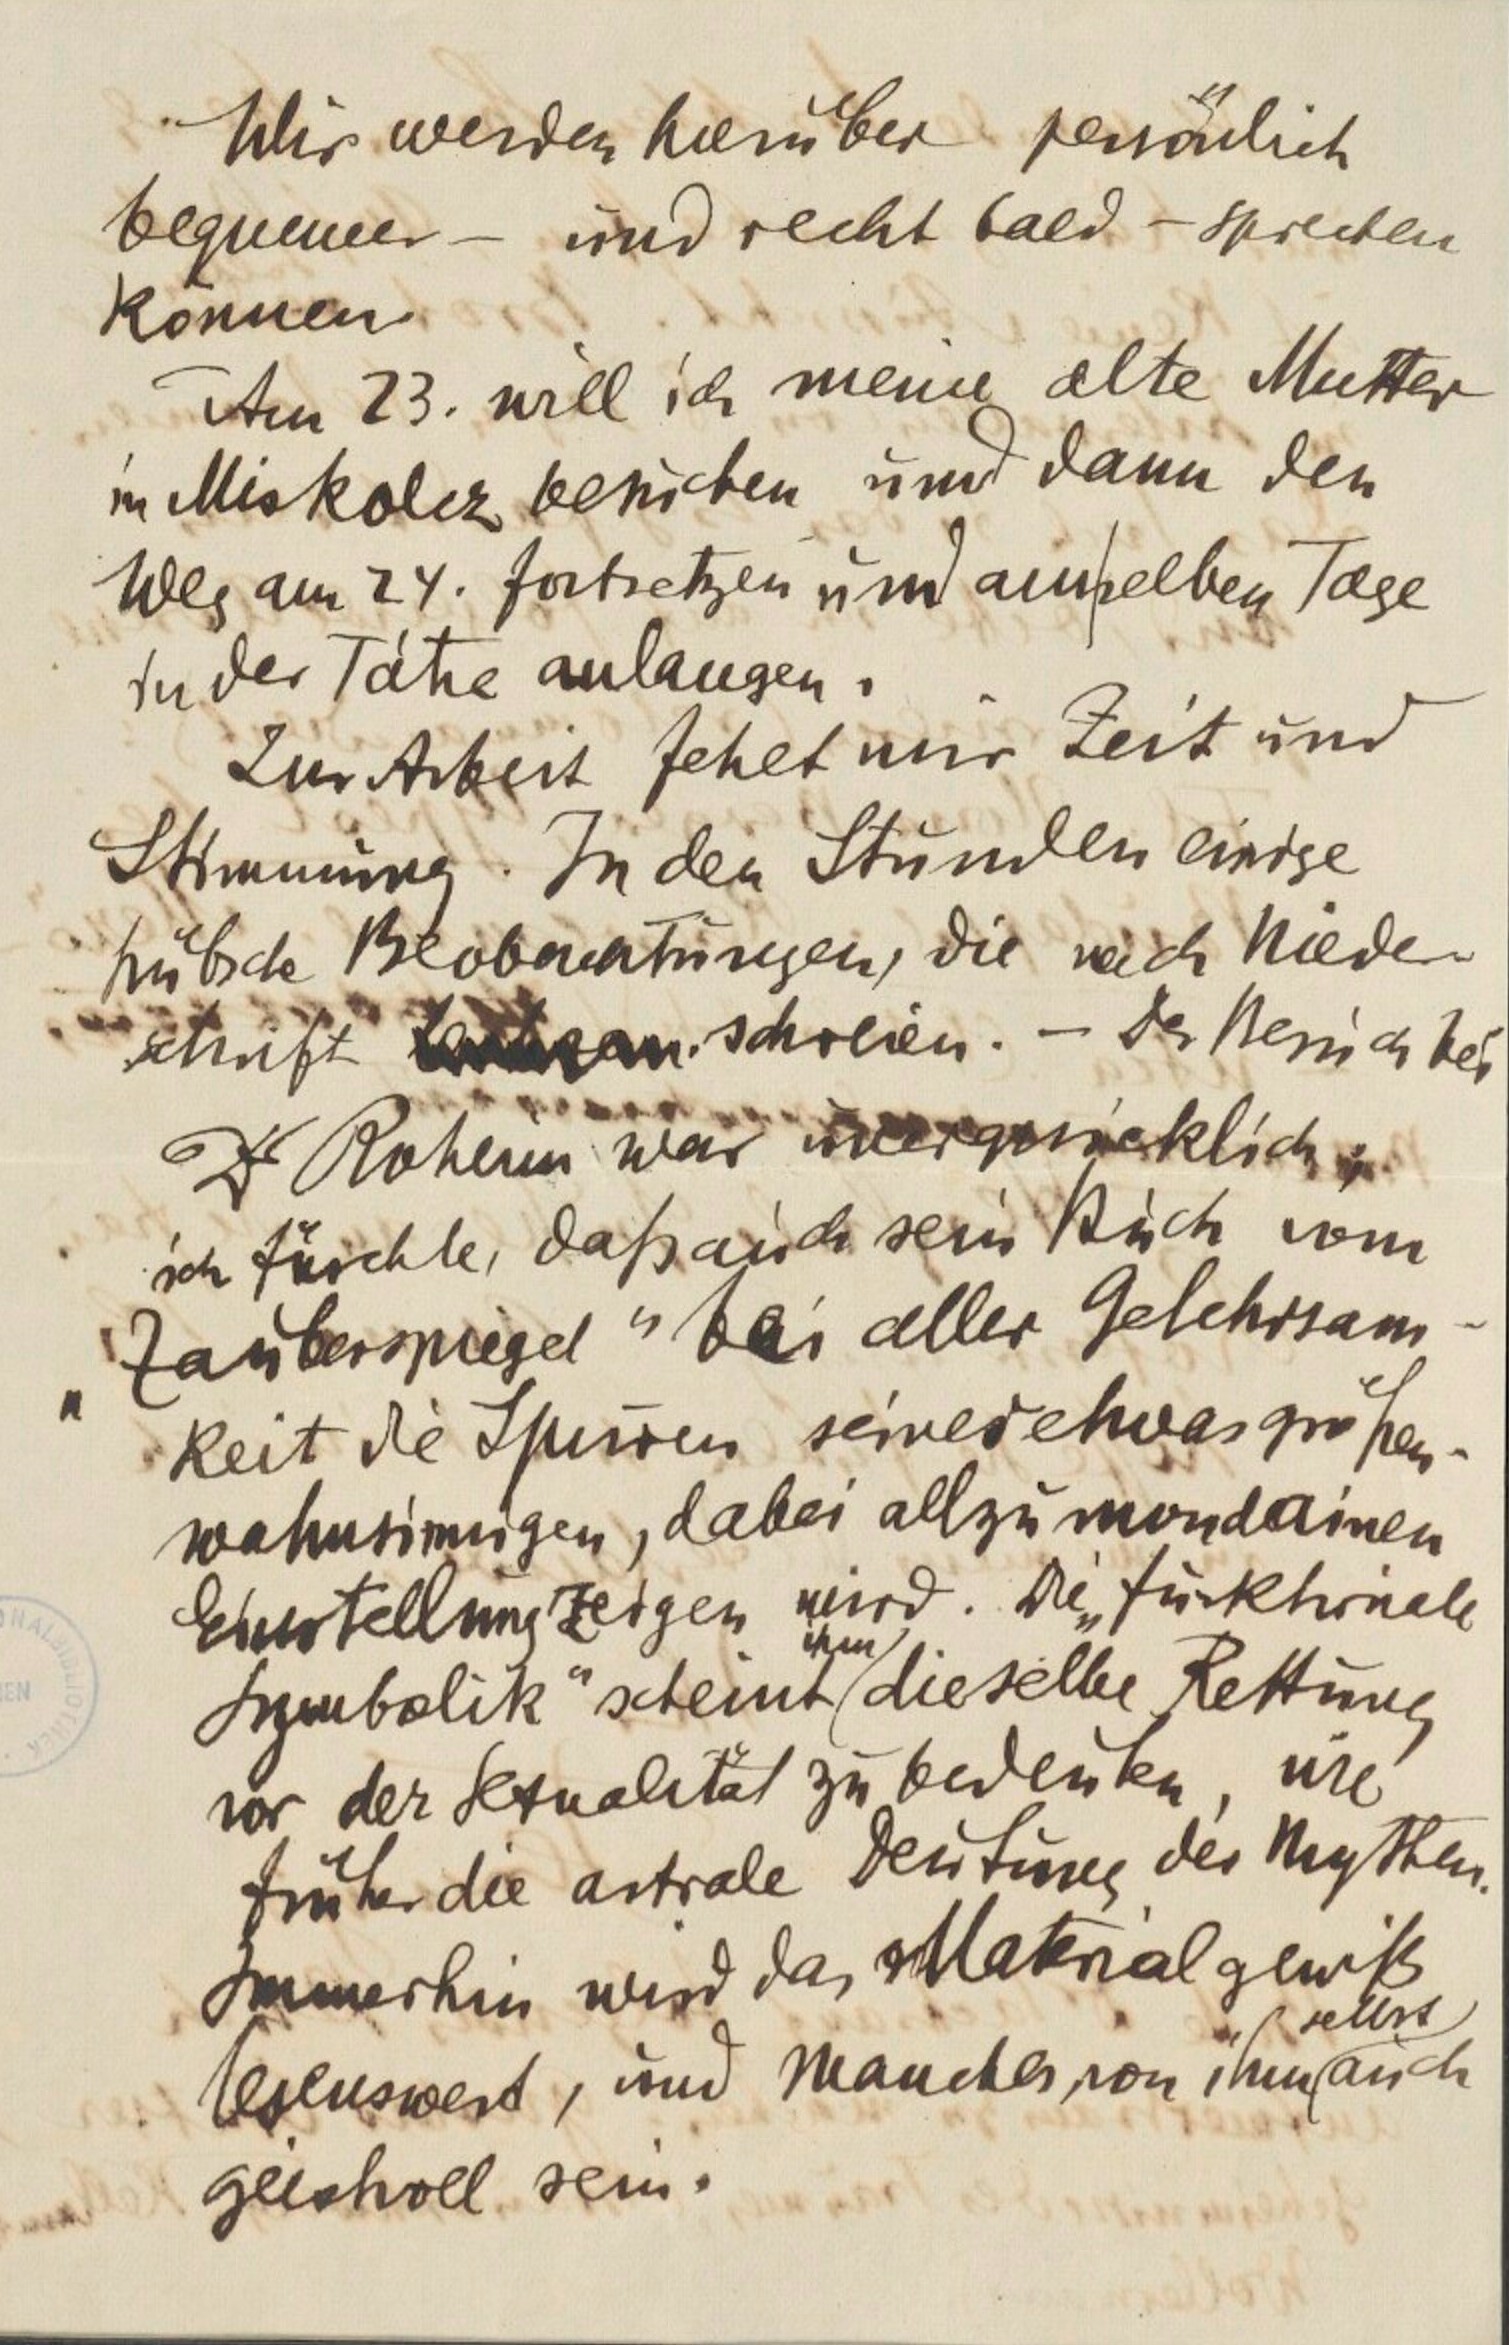 Wir werden hierüber persönlich
bequemer – und recht bald – sprechen
können.
Am 23. will ich meine alte Mutter
in Miskolcz besuchen und dann den
Weg am 24. fortsetzen und am selben Tage
in der Tátra anlangen.
Zur Arbeit fehlt mir Zeit und
Stimmung. In den Stunden einige
hübsche Beobachtungen, die nach Nieder-
schrift schreien. – Der Besuch bei
Dr Roheim war unerquicklich;
ich fürchte, daß auch sein Buch vom
„Zauberspiegel“ bei aller Gelehrsam-
keit die Spuren seiner etwas größen-
wahnsinnigen, dabei allzu mondainen
Einstellung zeigen wird. Die „funktionale
Symbolik“ scheint ihm dieselbe Rettung
vor der Sexualität zu bedeuten, wie
früher die astrale Deutung der Mythen.
Immerhin wird das Material gewiß
lesenswert, und manches von ihm selbst auch
geistvoll sein.